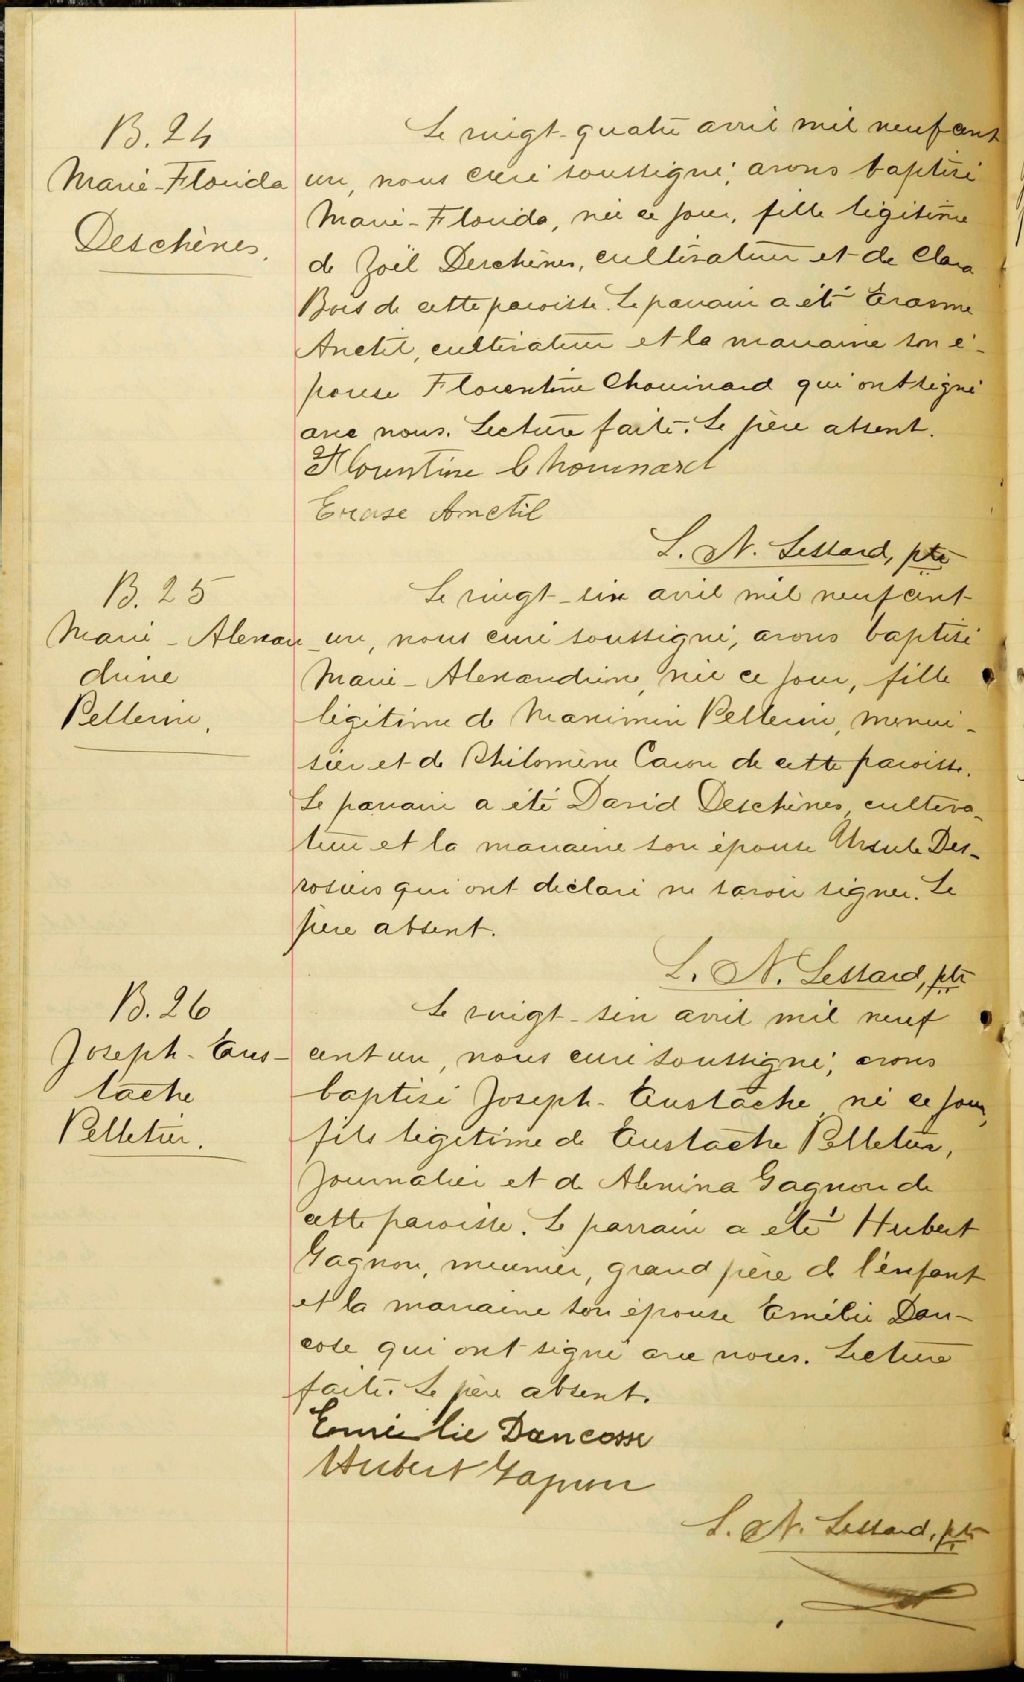 B. 24
Marie-Florida
Deschênes.
Le vingt-quatre avril mil neuf cent
un, nous curé soussigné, avons baptisé
Marie-Florida, née ce jour, fille légitime
de Joël Deschênes, cultivateur et de Clara
Bois de cette paroisse. Le parrain a été Erasme
Anctil, cultivateur et la marraine son é-
pouse Florentine Chouinard qui ont signé
avec nous. Lecture faite. Le père absent.
Florentine Chouinard
Erase Anctil
L. N. Lessard, ptre
B. 25
Marie-Alexan-
drine
Pellerin.
Le vingt-six avril mil neuf cent
un, nous curé soussigné, avons baptisé
Marie-Alexandrine, née ce jour, fille
légitime de Maximin Pellerin, menui-
sier et de Philomène Caron de cette paroisse.
Le parrain a été David Deschênes, cultiva-
teur et la marraine son épouse Ursule Des-
rosiers qui ont déclaré ne savoir signer. Le
père absent.
L. N. Lessard, ptre
B. 26
Joseph-Eus-
tache
Pelletier.
Le vingt-six avril mil neuf
cent un, nous curé soussigné, avons
baptisé Joseph-Eustache, né ce jour,
fils légitime de Eustache Pelletier,
journalier et de Alexina Gagnon de
cette paroisse. Le parrain a été Hubert
Gagnon, meunier, grand père de l'enfant
et la marraine son épouse Emélie Dan-
cose qui ont signé avec nous. Lecture
faite. Le père absent.
Emélie Dancosse
Hubert Gagnon
L. N. Lessard, ptre